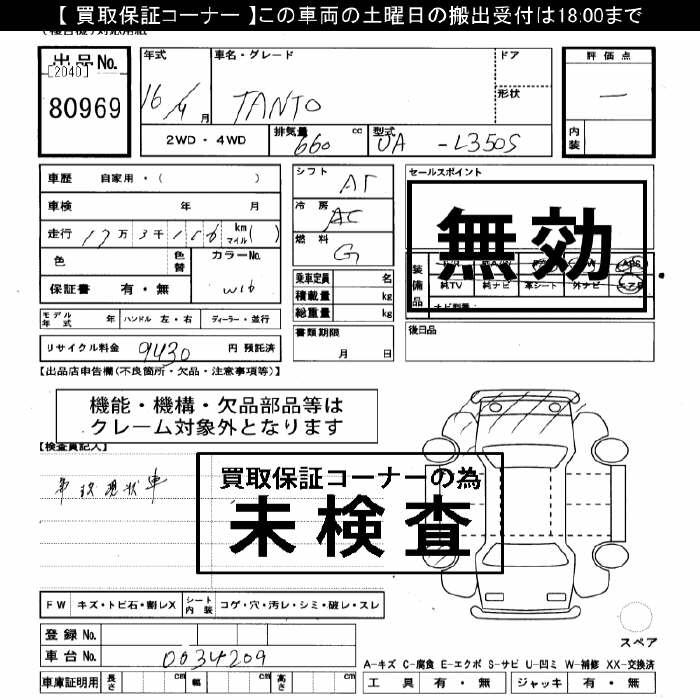 【 買取保証コーナー 】この車両の土曜日の搬出受付は18:00まで
出品No.
[2040]
80969
年式
16/4月
車名・グレード
TANTO
ドア
形状
評価点
—
内装
2WD・4WD
排気量 660 cc
型式 UA -L350S
車歴 自家用・( )
車検 年 月
走行 万 千 km マイル ( )
色
色替
カラーNo.
W16
保証書 有・無
シフト AT
冷房 AC
燃料 G
乗車定員 名
積載量 kg
総重量 kg
書類期限
月 日
セールスポイント
無効
装備品
純TV 純ナビ 革シート 外ナビ エアB
後日品
モデル年式 年
ハンドル 左・右
ディーラー・並行
リサイクル料金 9430 円 預託済
【出品店申告欄(不良箇所・欠品・注意事項等)】
機能・機構・欠品部品等は
クレーム対象外となります
【検査員記入】
買取保証コーナーの為
未検査
現状車
FW キズ・トビ石・割レX
シート内装 コゲ・穴・汚レ・シミ・破レ・スレ
登録No.
車台No. 0034209
車庫証明用 長さ cm 幅 cm 高さ cm
スペア
A-キズ C-腐食 E-エクボ S-サビ U-凹ミ W-補修 XX-交換済
工具 有・無 ジャッキ 有・無